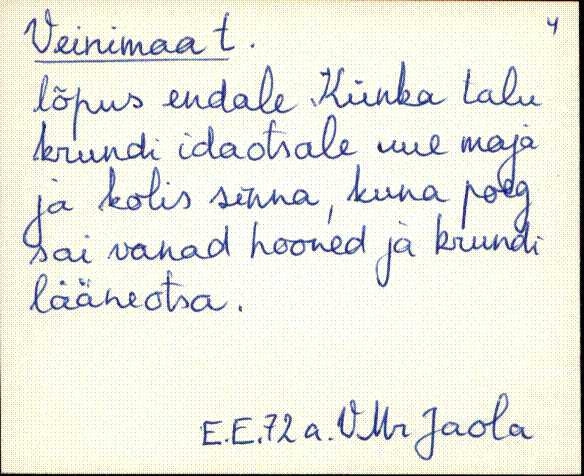 Veinimaa t. 4
lõpus endale Künka talu
krundi idaotsale uue maja
ja kolis sinna, kuna poeg
sai vanad hooned ja krundi
lääneotsa.
E.E. 72 a. VMr Jaola